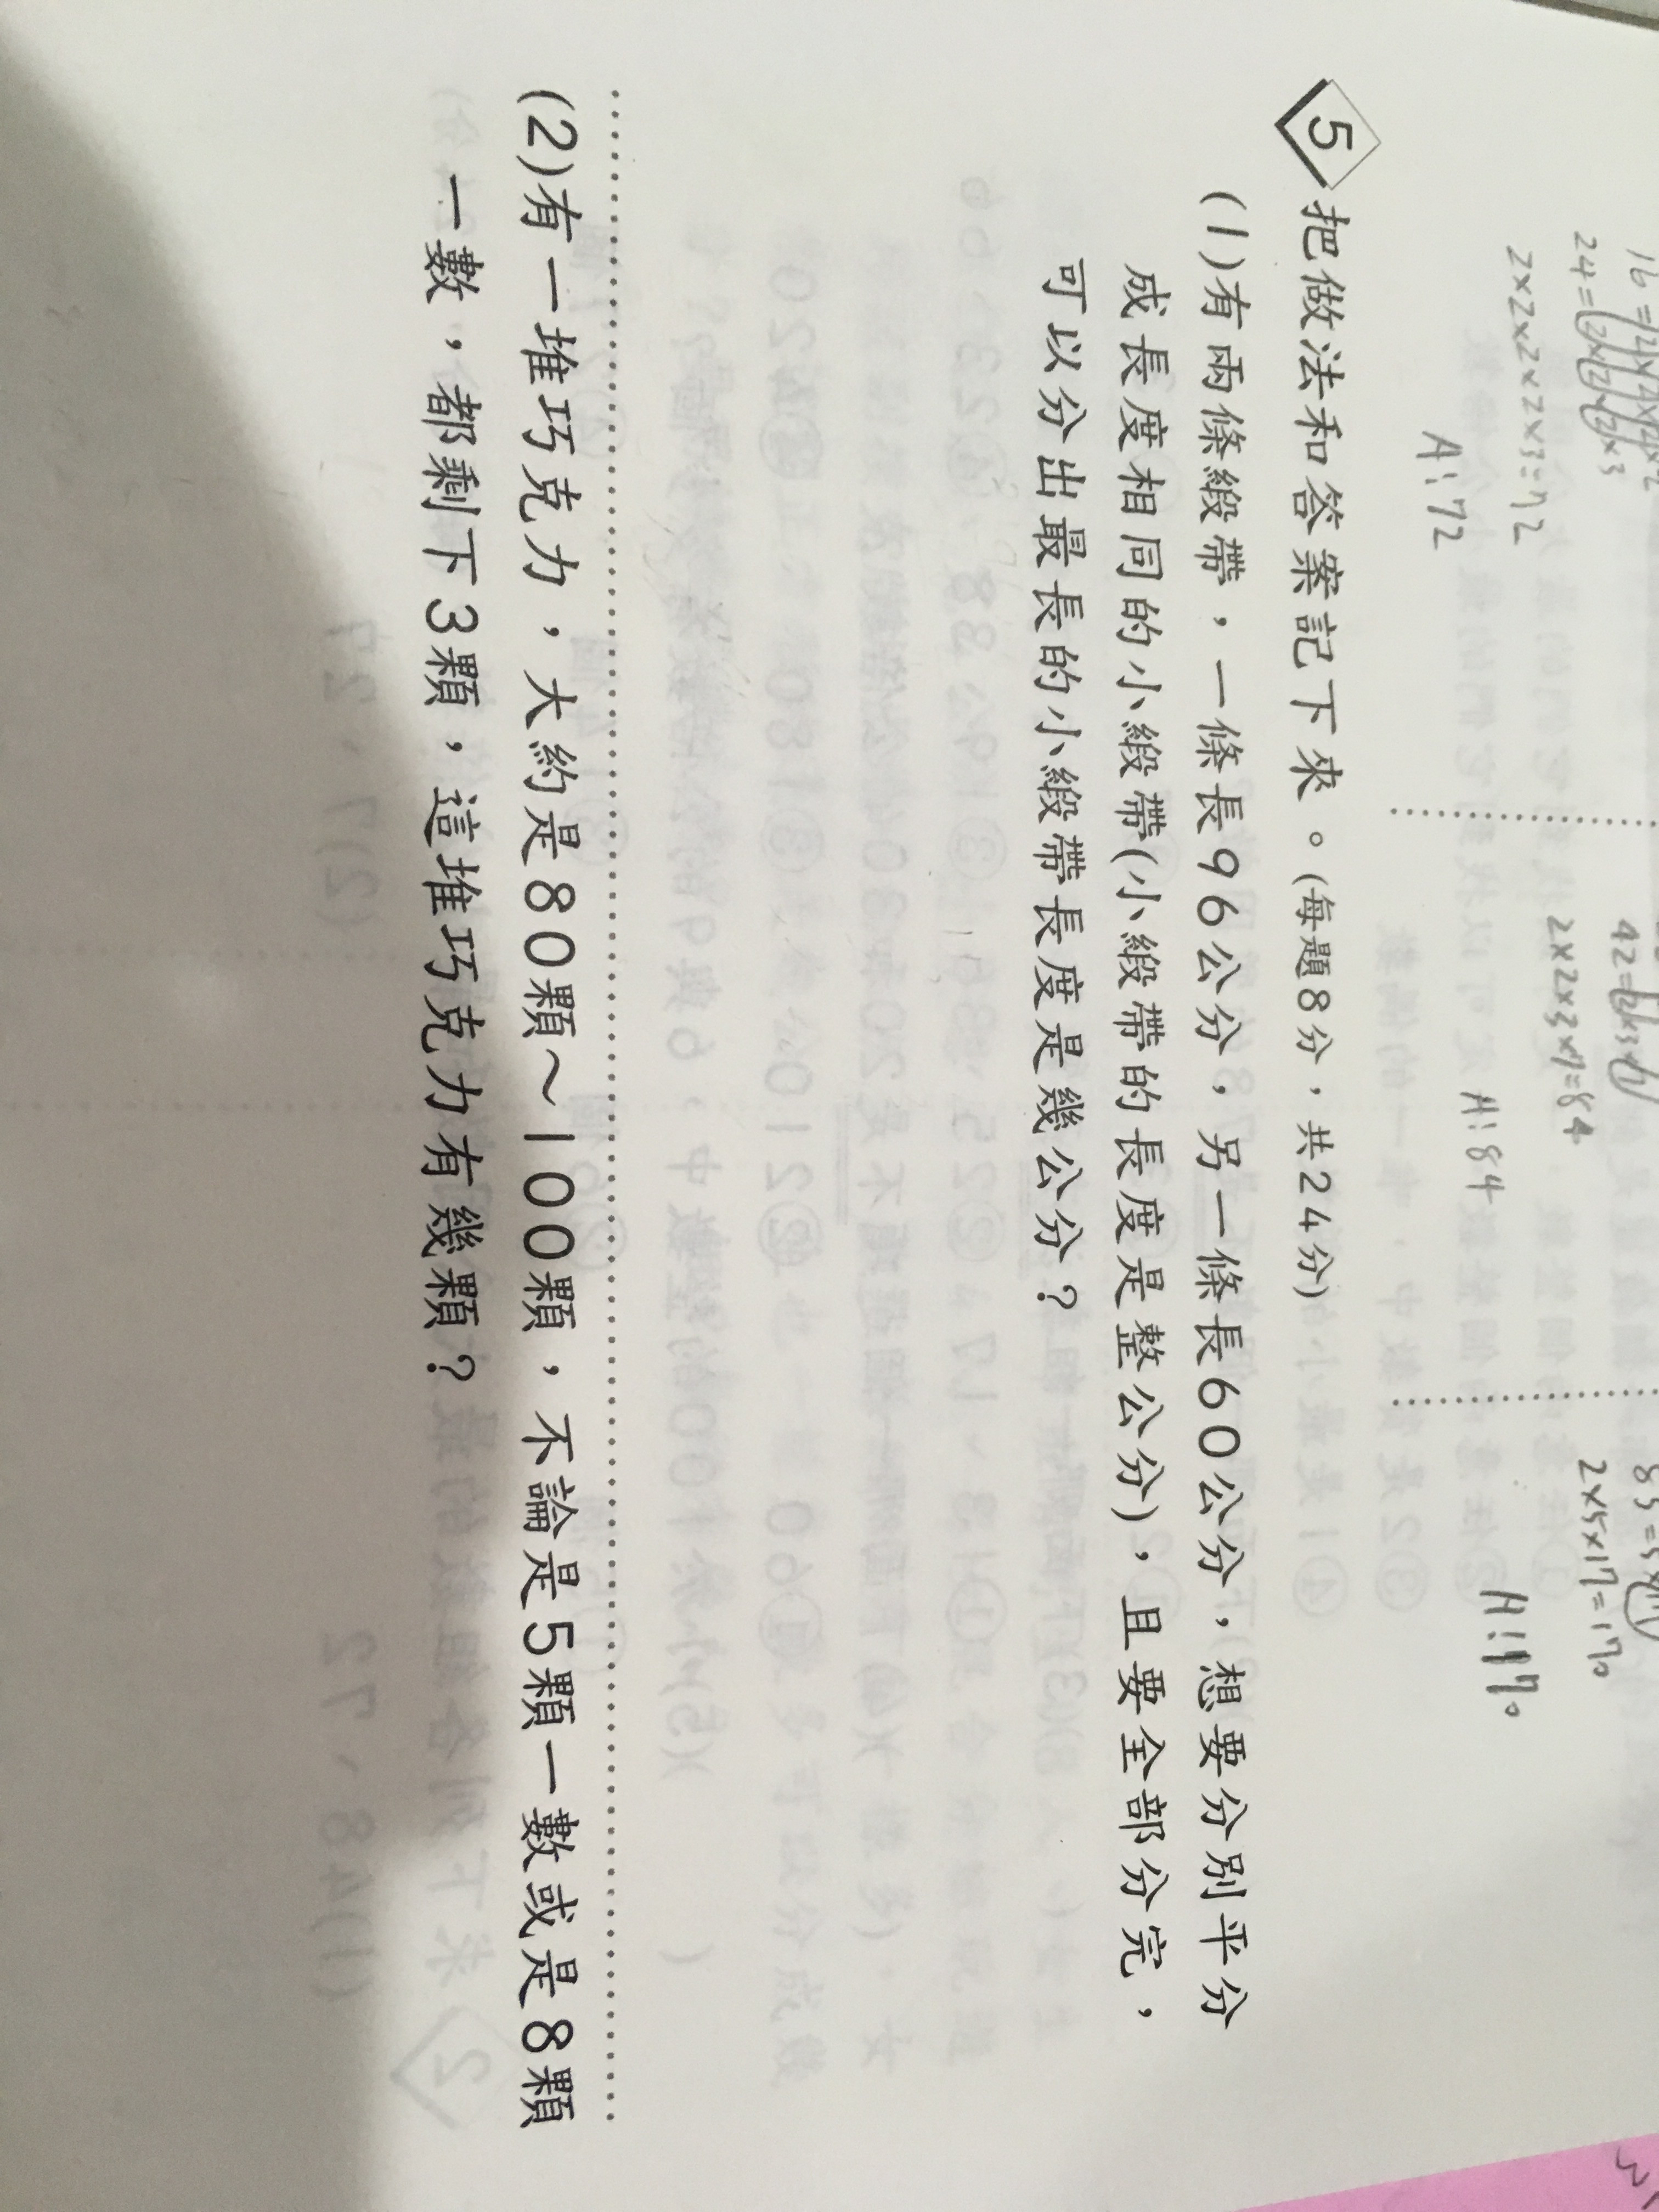 24=2×2×2×3
2×2×2×2×3=72
A:72
2×2×3×7=84
A:84
2×5×17=170
A:170
5 把做法和答案記下來。(每題8分，共24分)
(1)有兩條緞帶，一條長96公分，另一條長60公分，想要分別平分
成長度相同的小緞帶(小緞帶的長度是整公分)，且要全部分完，
可以分出最長的小緞帶長度是幾公分？
(2)有一堆巧克力，大約是80顆～100顆，不論是5顆一數或是8顆
一數，都剩下3顆，這堆巧克力有幾顆？